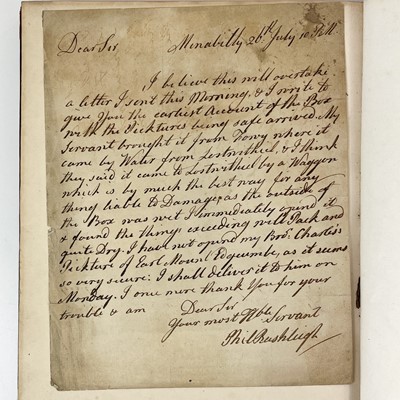 Dear Sir Menabilly 26th July 10
I believe this will overtake
a letter I sent this Morning, & I write to
give You the earliest Account of the Box
with the Picktures being safe arrived, My
Servant brought it from Fowy where it
came by Water from Lostwithiel, & I think
they said it came to Lostwithiel by a Waggon
which is by much the best way for any
thing liable to Damage; as the outside of
the Box was wet I immediately opend it
& found the things exceeding well Pack and
quite Dry. I have not opend my Bror. Charles's
Pickture of Earl Mount Edgcumbe, as it seems
so very secure: I shall deliver it to him on
Monday. I once more thank You for your
trouble & am Dear Sir
Your most Hble Servant
Phil Rashleigh